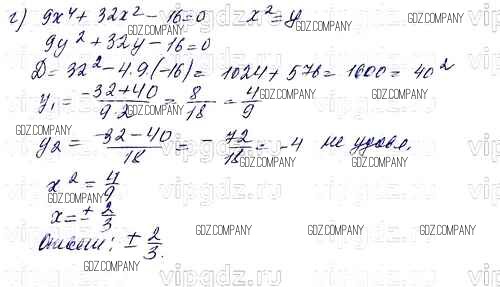 г) 9x⁴ + 32x² - 16 = 0   x² = y
9y² + 32y - 16 = 0
D = 32² - 4·9(-16) = 1024 + 576 = 1600 = 40²
y₁ = (-32+40)/(9·2) = 8/18 = 4/9
y₂ = (-32-40)/18 = -72/18 = -4 не удовл.
x² = 4/9
x = ± 2/3
Ответ: ± 2/3.
GDZ.COMPANY
vipgdz.ru